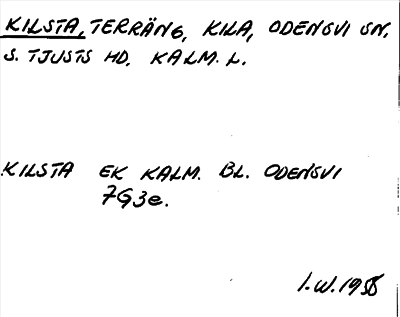 KILSTA, TERRÄNG, KILA, ODENSVI SN,
S. TJUSTS HD, KALM. L.
KILSTA EK KALM. BL. ODENSVI
7G3e.
I.W. 1958